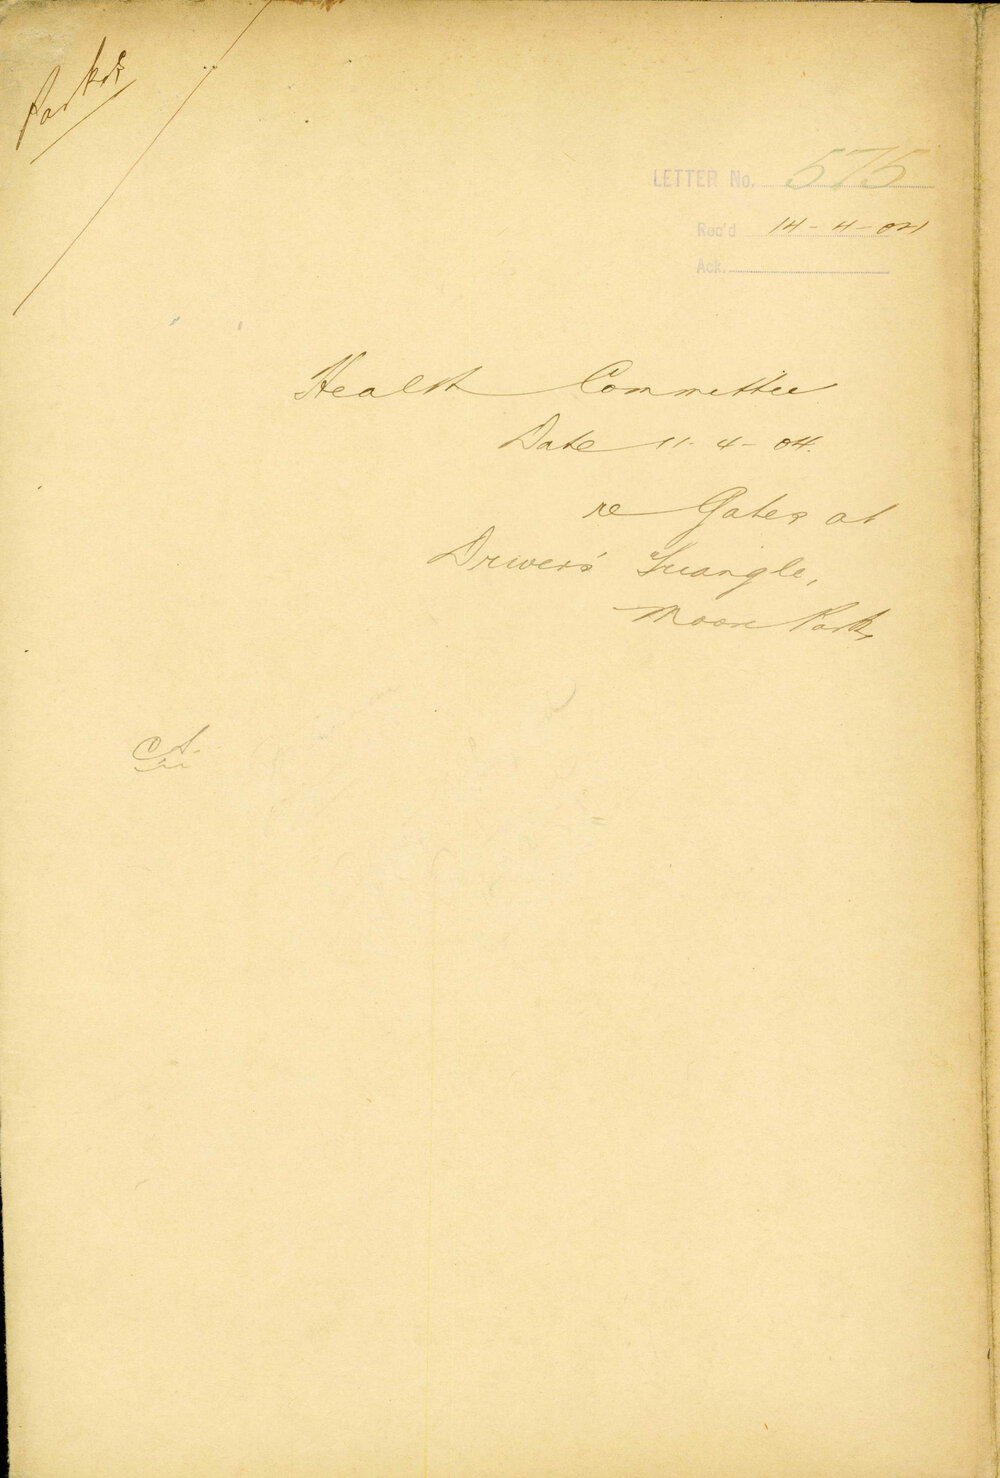 Parks
LETTER No. 575
Rec'd 14-4-04
Ack.
Health Committee
Date 11-4-04.
re Gates at
Driver's Triangle,
Moore Park,